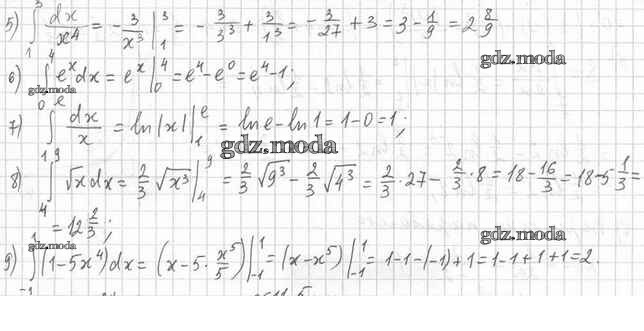 5) ∫₁³ dx/x⁴ = -3/x³ |₁³ = -3/3³ + 3/1³ = -3/27 + 3 = 3 - 1/9 = 2 8/9
gdz.moda
6) ∫₀⁴ eˣdx = eˣ |₀⁴ = e⁴ - e⁰ = e⁴ - 1;
gdz.moda
7) ∫₁ᵉ dx/x = ln|x| |₁ᵉ = ln e - ln 1 = 1 - 0 = 1;
gdz.moda
8) ∫₄⁹ √x dx = 2/3 √x³ |₄⁹ = 2/3 √9³ - 2/3 √4³ = 2/3 · 27 - 2/3 · 8 = 18 - 16/3 = 18 - 5 1/3 =
= 12 2/3;
gdz.moda
gdz.moda
9) ∫₋₁¹ (1 - 5x⁴) dx = (x - 5 · x⁵/5) |₋₁¹ = (x - x⁵) |₋₁¹ = 1 - 1 - (-1) + 1 = 1 - 1 + 1 + 1 = 2.